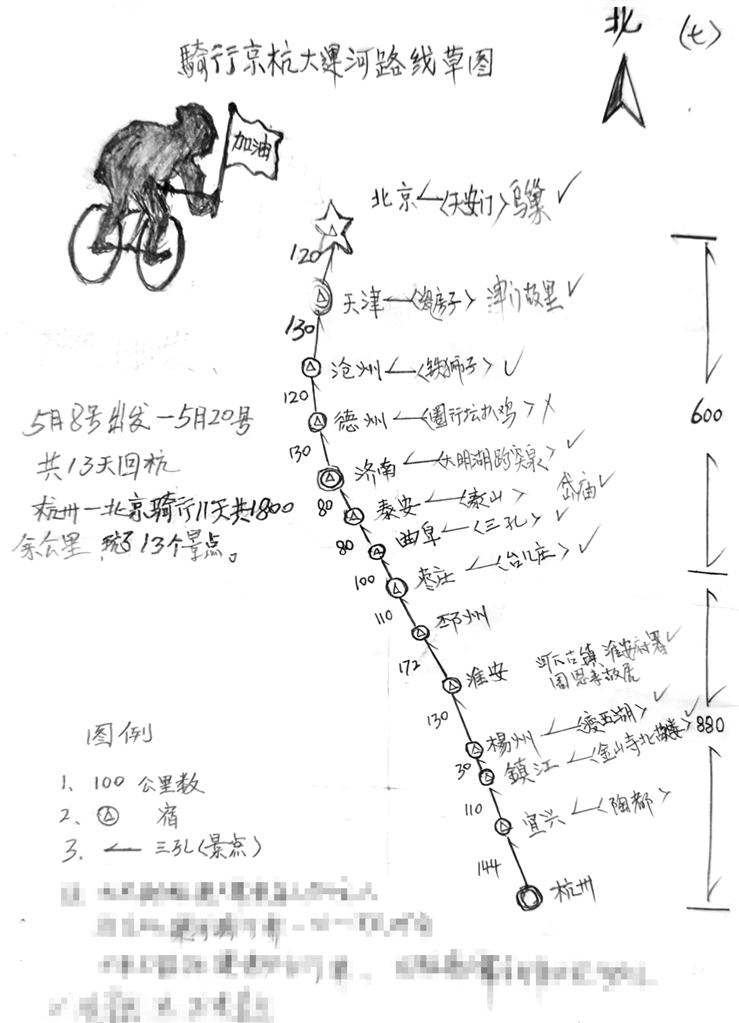 北 (七)
騎行京杭大運河路线草图
加油
北京 <天安门> 鸟巢 ✓
120
天津 <瓷房子> 津门故里 ✓
130
沧州 <铁狮子> ✓
120
德州 <圈行坛扒鸡> X
130
济南 <大明湖趵突泉> ✓
80
泰安 <泰山> 岱庙 ✓
80
曲阜 <三孔> ✓
100
枣庄 <台儿庄> ✓
110
邳州
172
淮安 河下古镇 淮安府署 ✓
周恩来故居
130
楊州 <瘦西湖> ✓
30
鎮江 <金山寺北> ✓
110
宜兴 <陶都>
144
杭州
600
880
5月8号出发-5月20号
共13天回杭
杭州-北京骑行11天共1800
余公里 玩了13个景点。
图例
1、100 公里数
2、 宿
3、 三孔(景点)